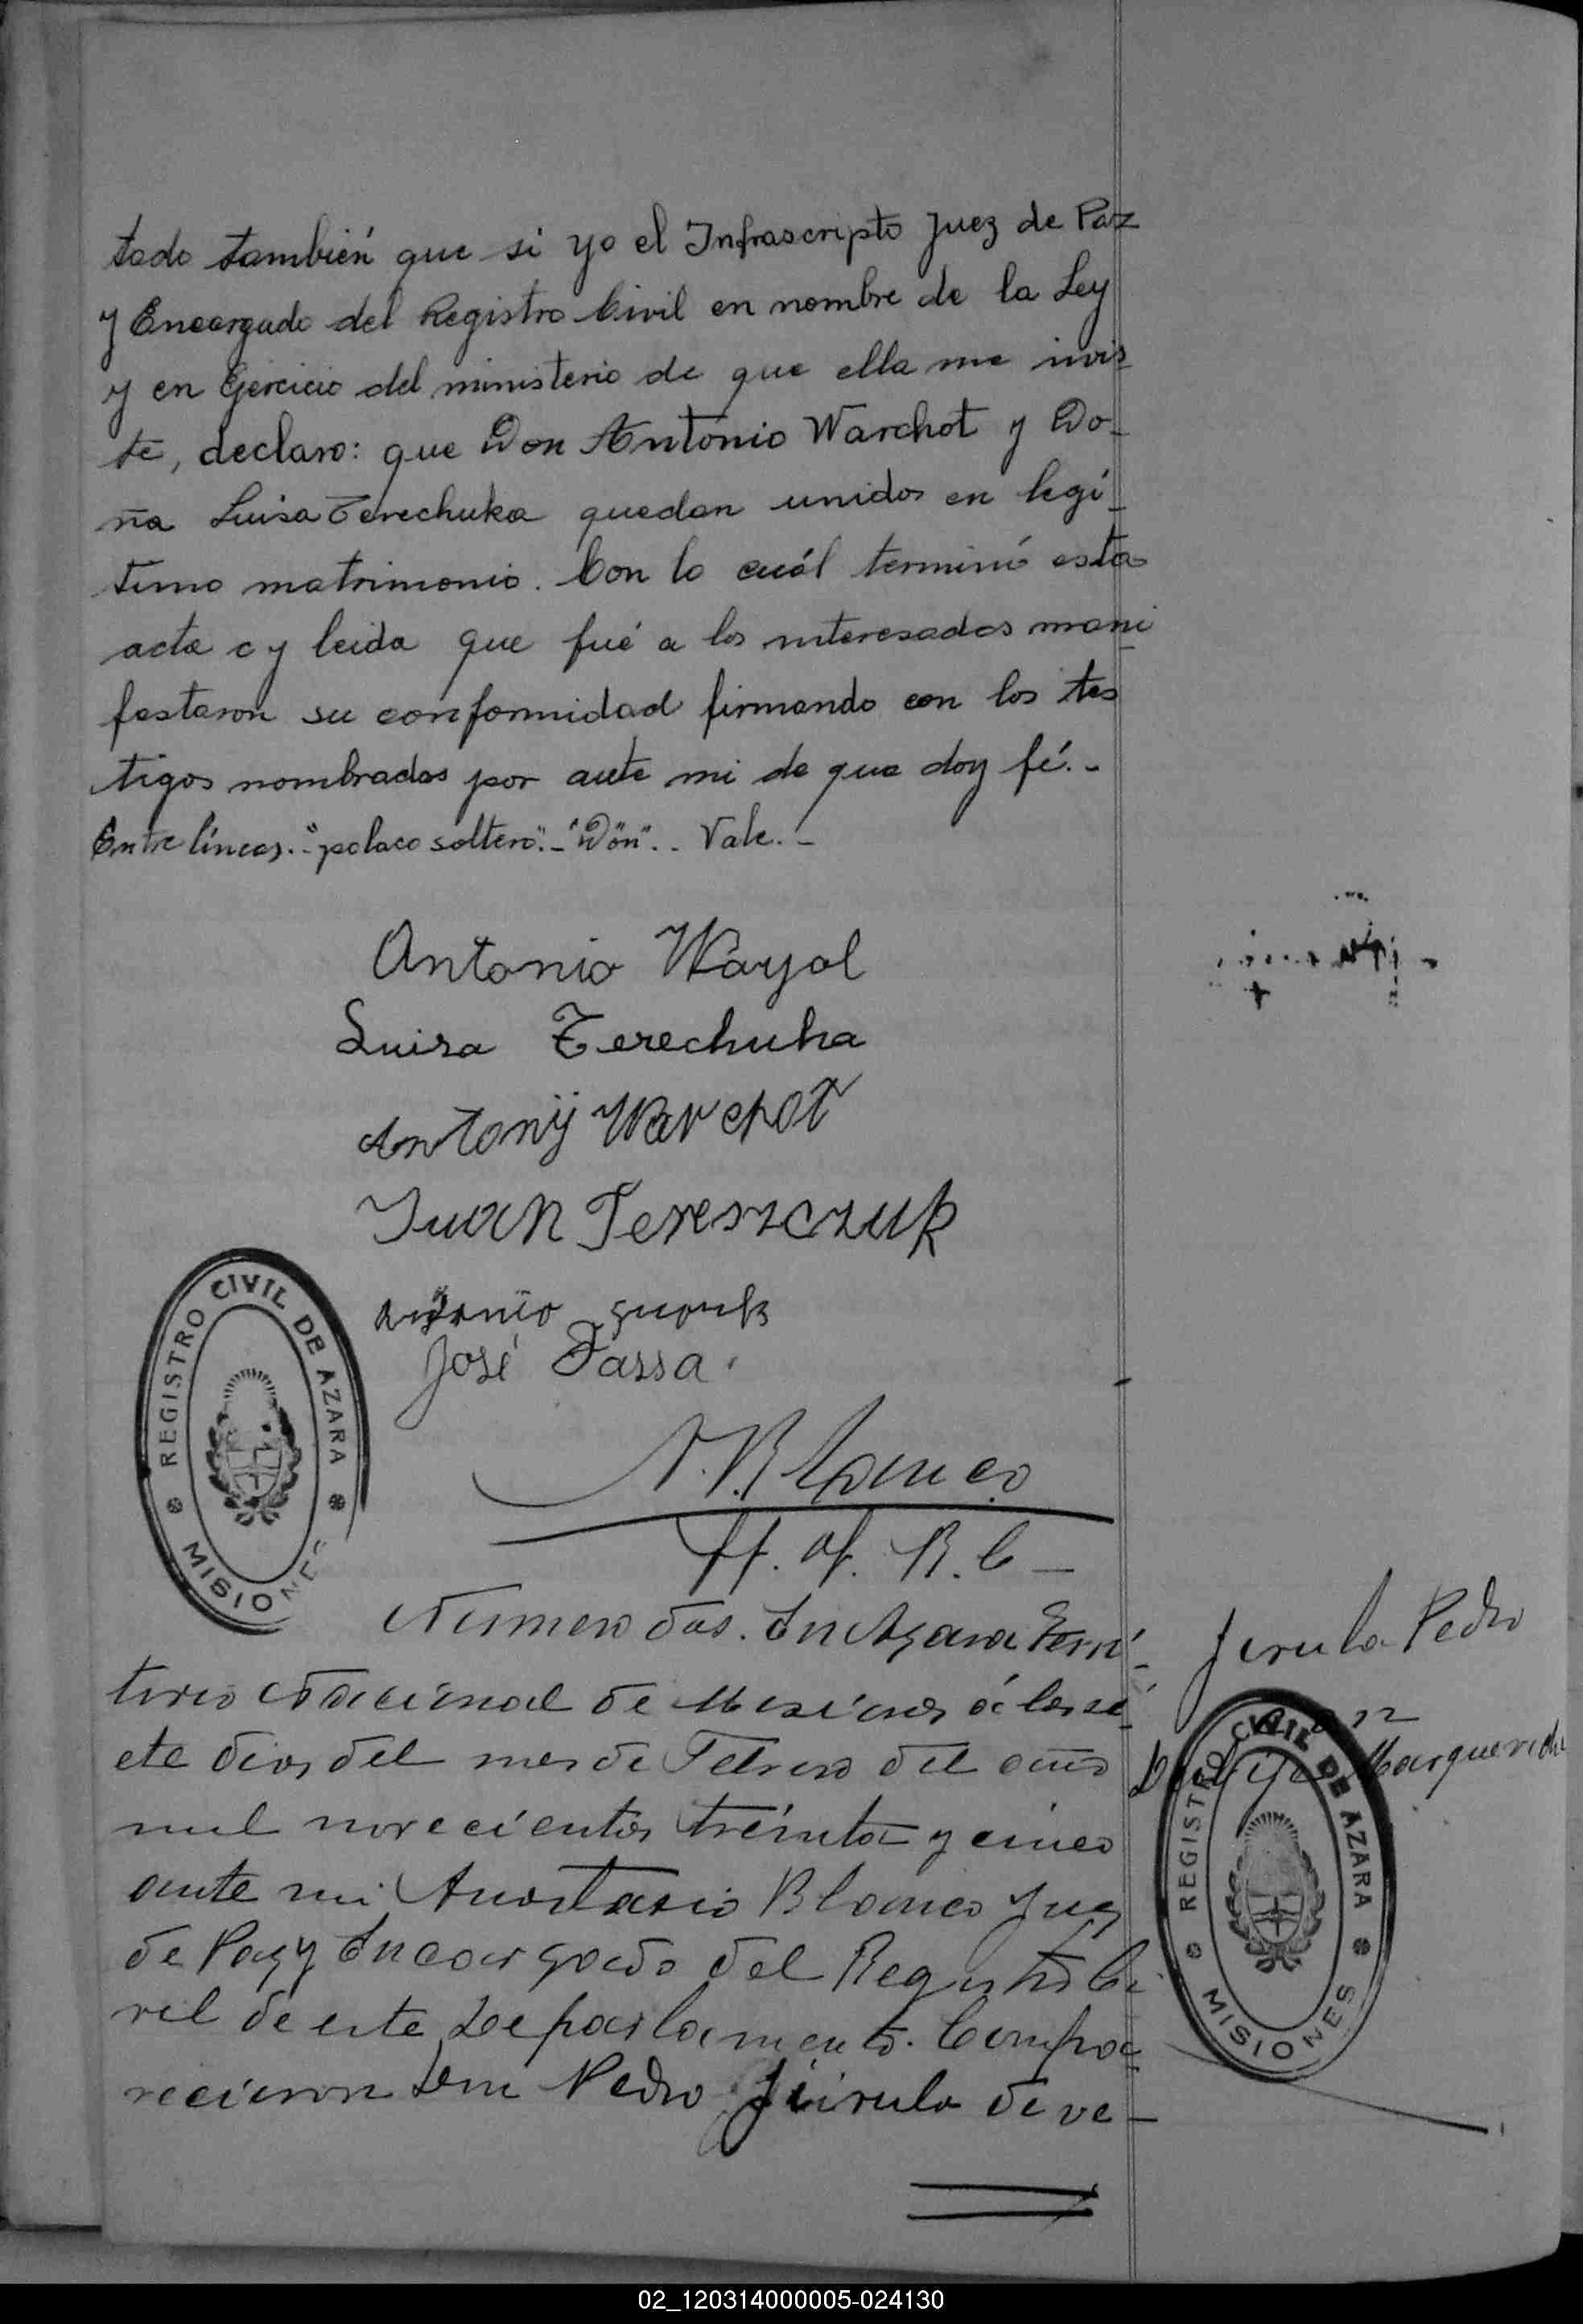 tado también que si yo el Infrascripto Juez de Paz
y Encargado del Registro Civil en nombre de la Ley
y en Ejercicio del ministerio de que ella me invis-
te, declaro: que Don Antonio Warchot y Do-
ña Luisa Terechuka quedan unidos en legí-
timo matrimonio. Con lo cuál terminó esta
acta c y leida que fué a los interesados mani-
festaron su conformidad firmando con los tes
tigos nombrados por ante mi de que doy fé.-
Entre líneas.-"polaco soltero".-"Don".- Vale.-
Antonio Wayol
Luisa Terechuha
Antonÿ Warchot
Juan Tereszczuk
Antonio
José Fassa.
A. Blanco
REGISTRO CIVIL DE AZARA
MISIONES
Número dos. En Azara Terri-
torio Nacional de Misiones á los si-
ete dias del mes de Febrero del año
mil novecientos tréinta y cinco
ante mi Anastasio Blanco Juez
de Paz y Encargado del Registro Ci
vil de este Departamento. Compa-
recieron Don Pedro Jirula de ve-
Jerula Pedro
con
Marguerida
REGISTRO CIVIL DE AZARA
MISIONES
02_120314000005-024130